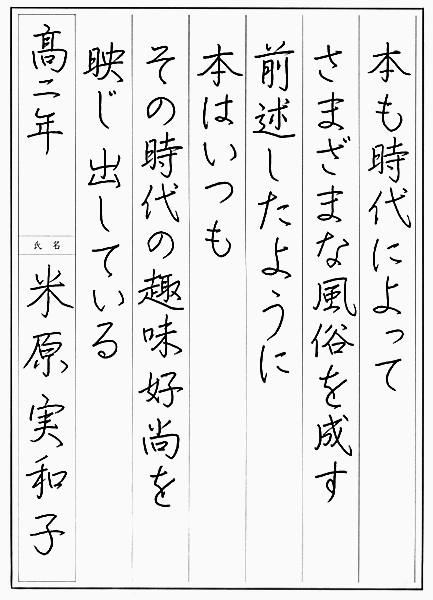 本も時代によって
さまざまな風俗を成す
前述したように
本はいつも
その時代の趣味好尚を
映じ出している
高二年
氏名
米原実和子